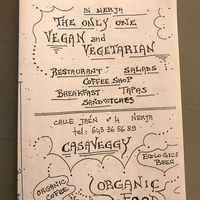 IN NERJA
THE ONLY ONE
VEGAN and
VEGETARIAN
RESTAURANT SALADS
COFFEE SHOP
BREAKFAST TAPAS
SANDWITCHES
CALLE JAÉN Nº 4 NERJA
tel: 643 36 56 89
CASAVEGGY
ECOLOGICAL
BEER
ORGANIC
COFFEE
ORGANIC
FOOD